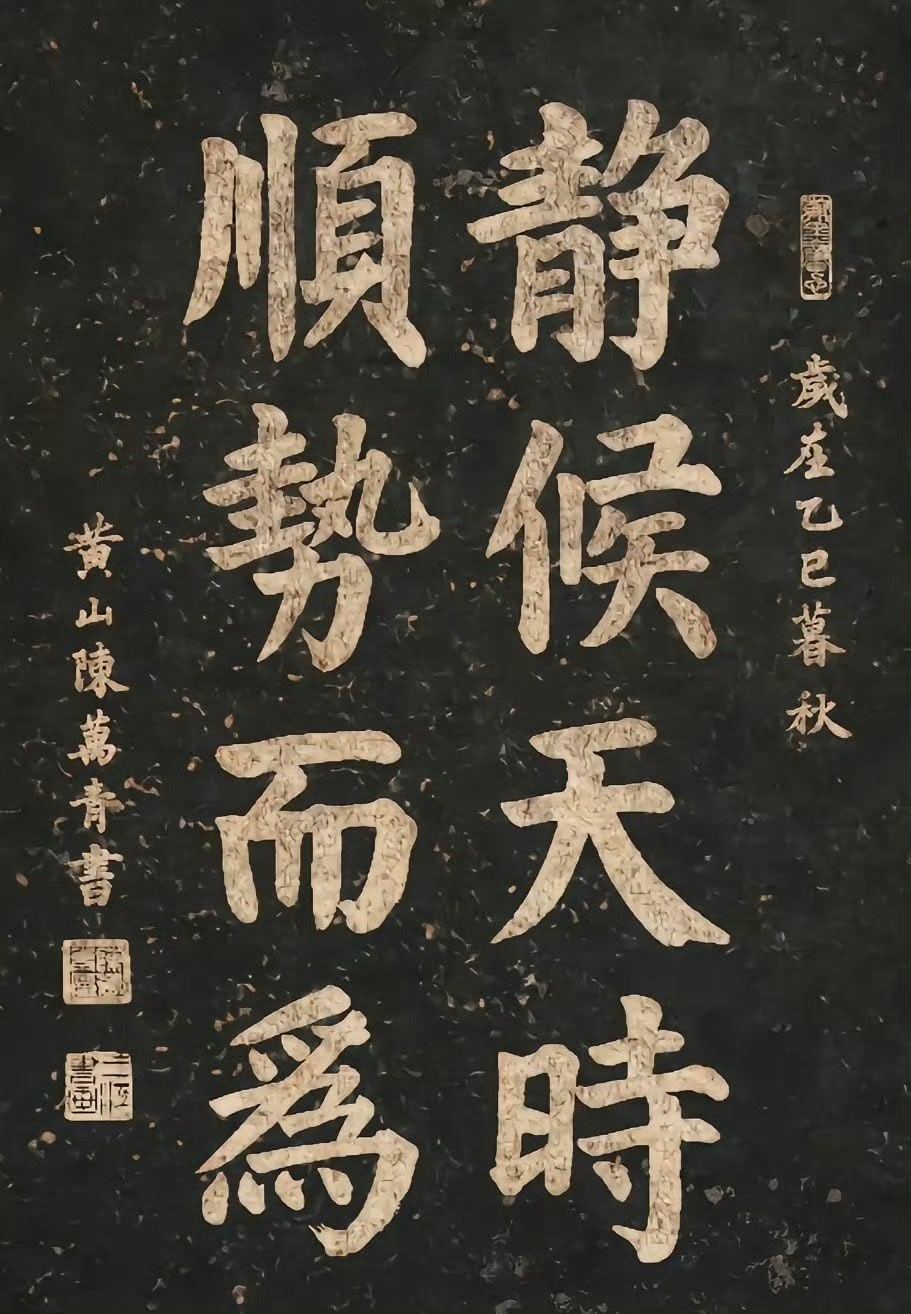 歲在乙巳暮秋
静候天時
順勢而爲
黄山陳萬青書